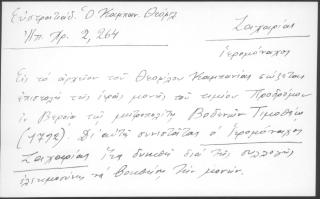 Εὐστρατιάδ. Ὁ Καμπαν. Θεόφιλ
Ἠπ. Χρ. 2, 264
Ζαχαρίας
ἱερομόναχος
Εἰς τὸ ἀρχεῖον τοῦ Θεοφίλου Καμπανίας σώζεται
ἐπιστολὴ τῆς ἱερᾶς μονῆς τοῦ τιμίου Προδρόμου
ἐν Βεροίᾳ τῷ μητροπολίτῃ Βοδενῶν Τιμοθέῳ
(1792). Δι' αὐτῆς συνιστᾶται ὁ ἱερομόναχος
Ζαχαρίας ἵνα δυνηθῇ διὰ τῆς συλλογῆς
ἐλεημοσύνης νὰ βοηθήσῃ τὴν μονήν.